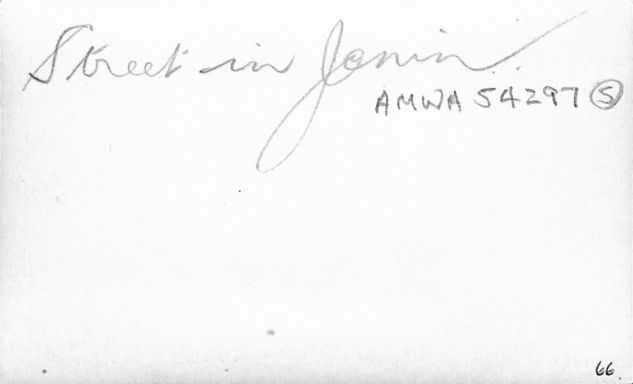 Street in Jenin.
AMWA 54297 Ⓢ
66